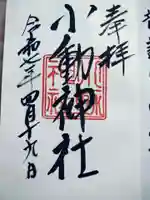 奉拝
小動神社
令和七年四月十九日